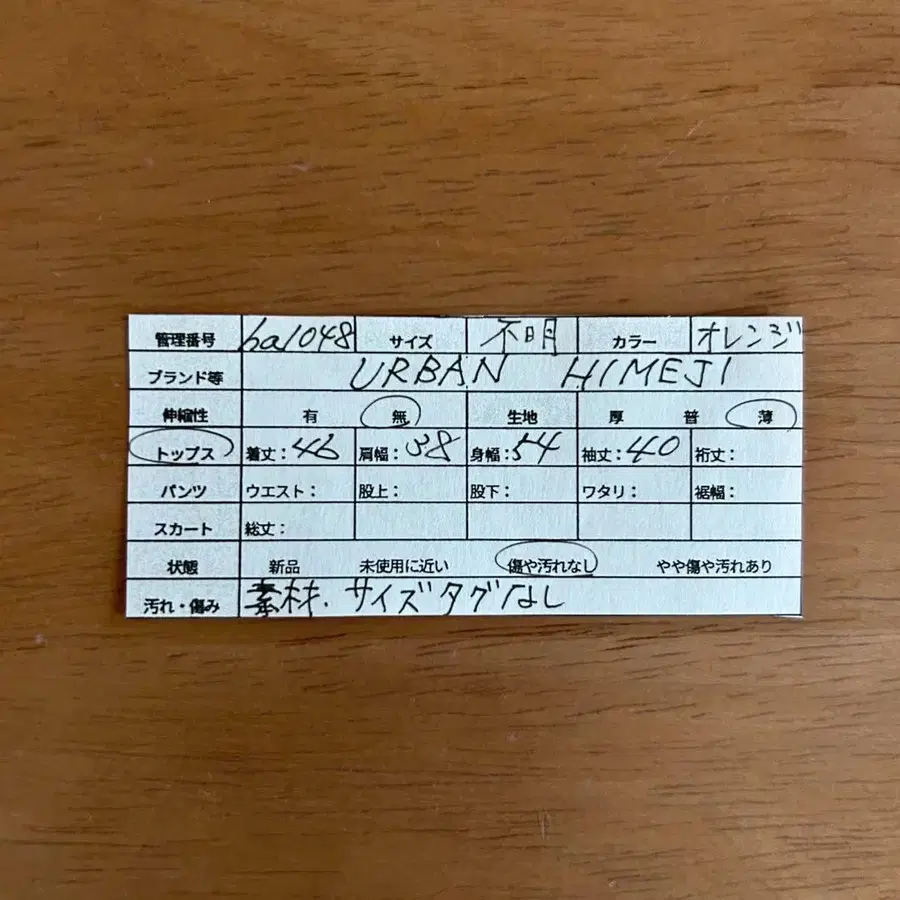 管理番号 ha1048 サイズ 不明 カラー オレンジ
ブランド等 URBAN HIMEJI
伸縮性 有 無 生地 厚 普 薄
トップス 着丈：46 肩幅：38 身幅：54 袖丈：40 裄丈：
パンツ ウエスト： 股上： 股下： ワタリ： 裾幅：
スカート 総丈：
状態 新品 未使用に近い 傷や汚れなし やや傷や汚れあり
汚れ・傷み 素材．サイズタグなし